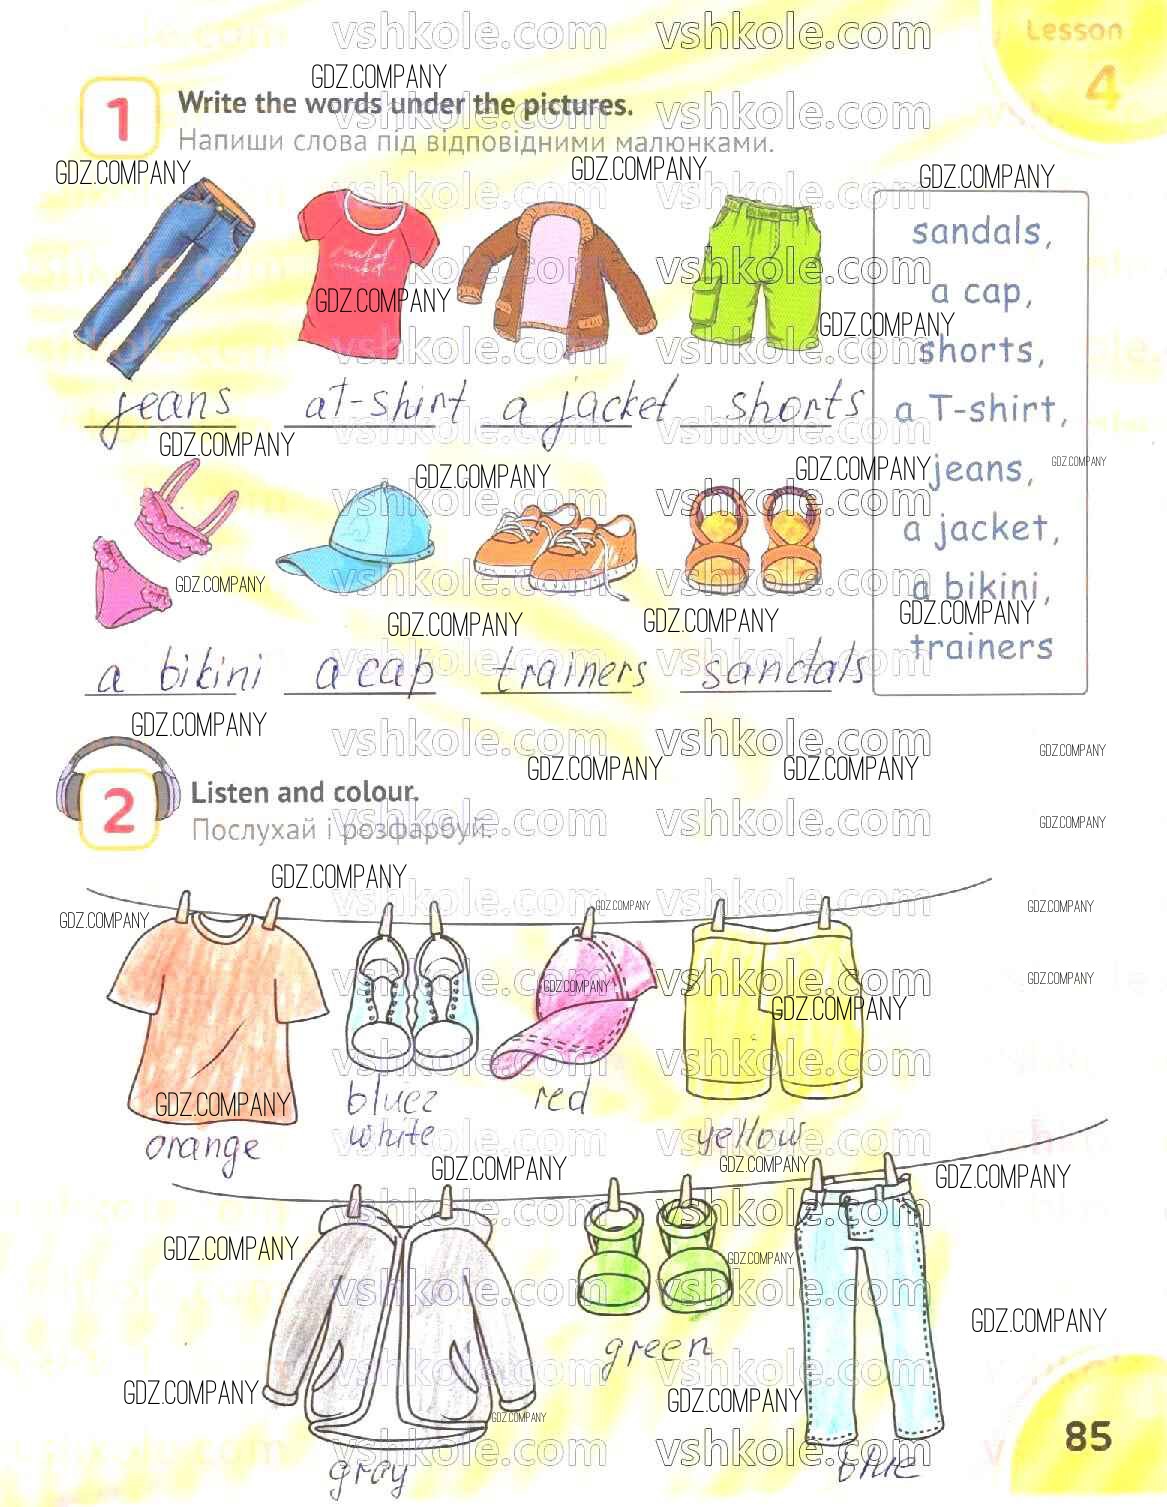 Lesson
4
1
Write the words under the pictures.
Напиши слова під відповідними малюнками.
sandals,
a cap,
shorts,
a T-shirt,
jeans,
a jacket,
a bikini,
trainers
jeans a T-shirt a jacket shorts
a bikini a cap trainers sandals
2
Listen and colour.
Послухай і розфарбуй.
orange
blue
white
red
yellow
gray
green
blue
85
vshkole.com vshkole.com
GDZ.COMPANY